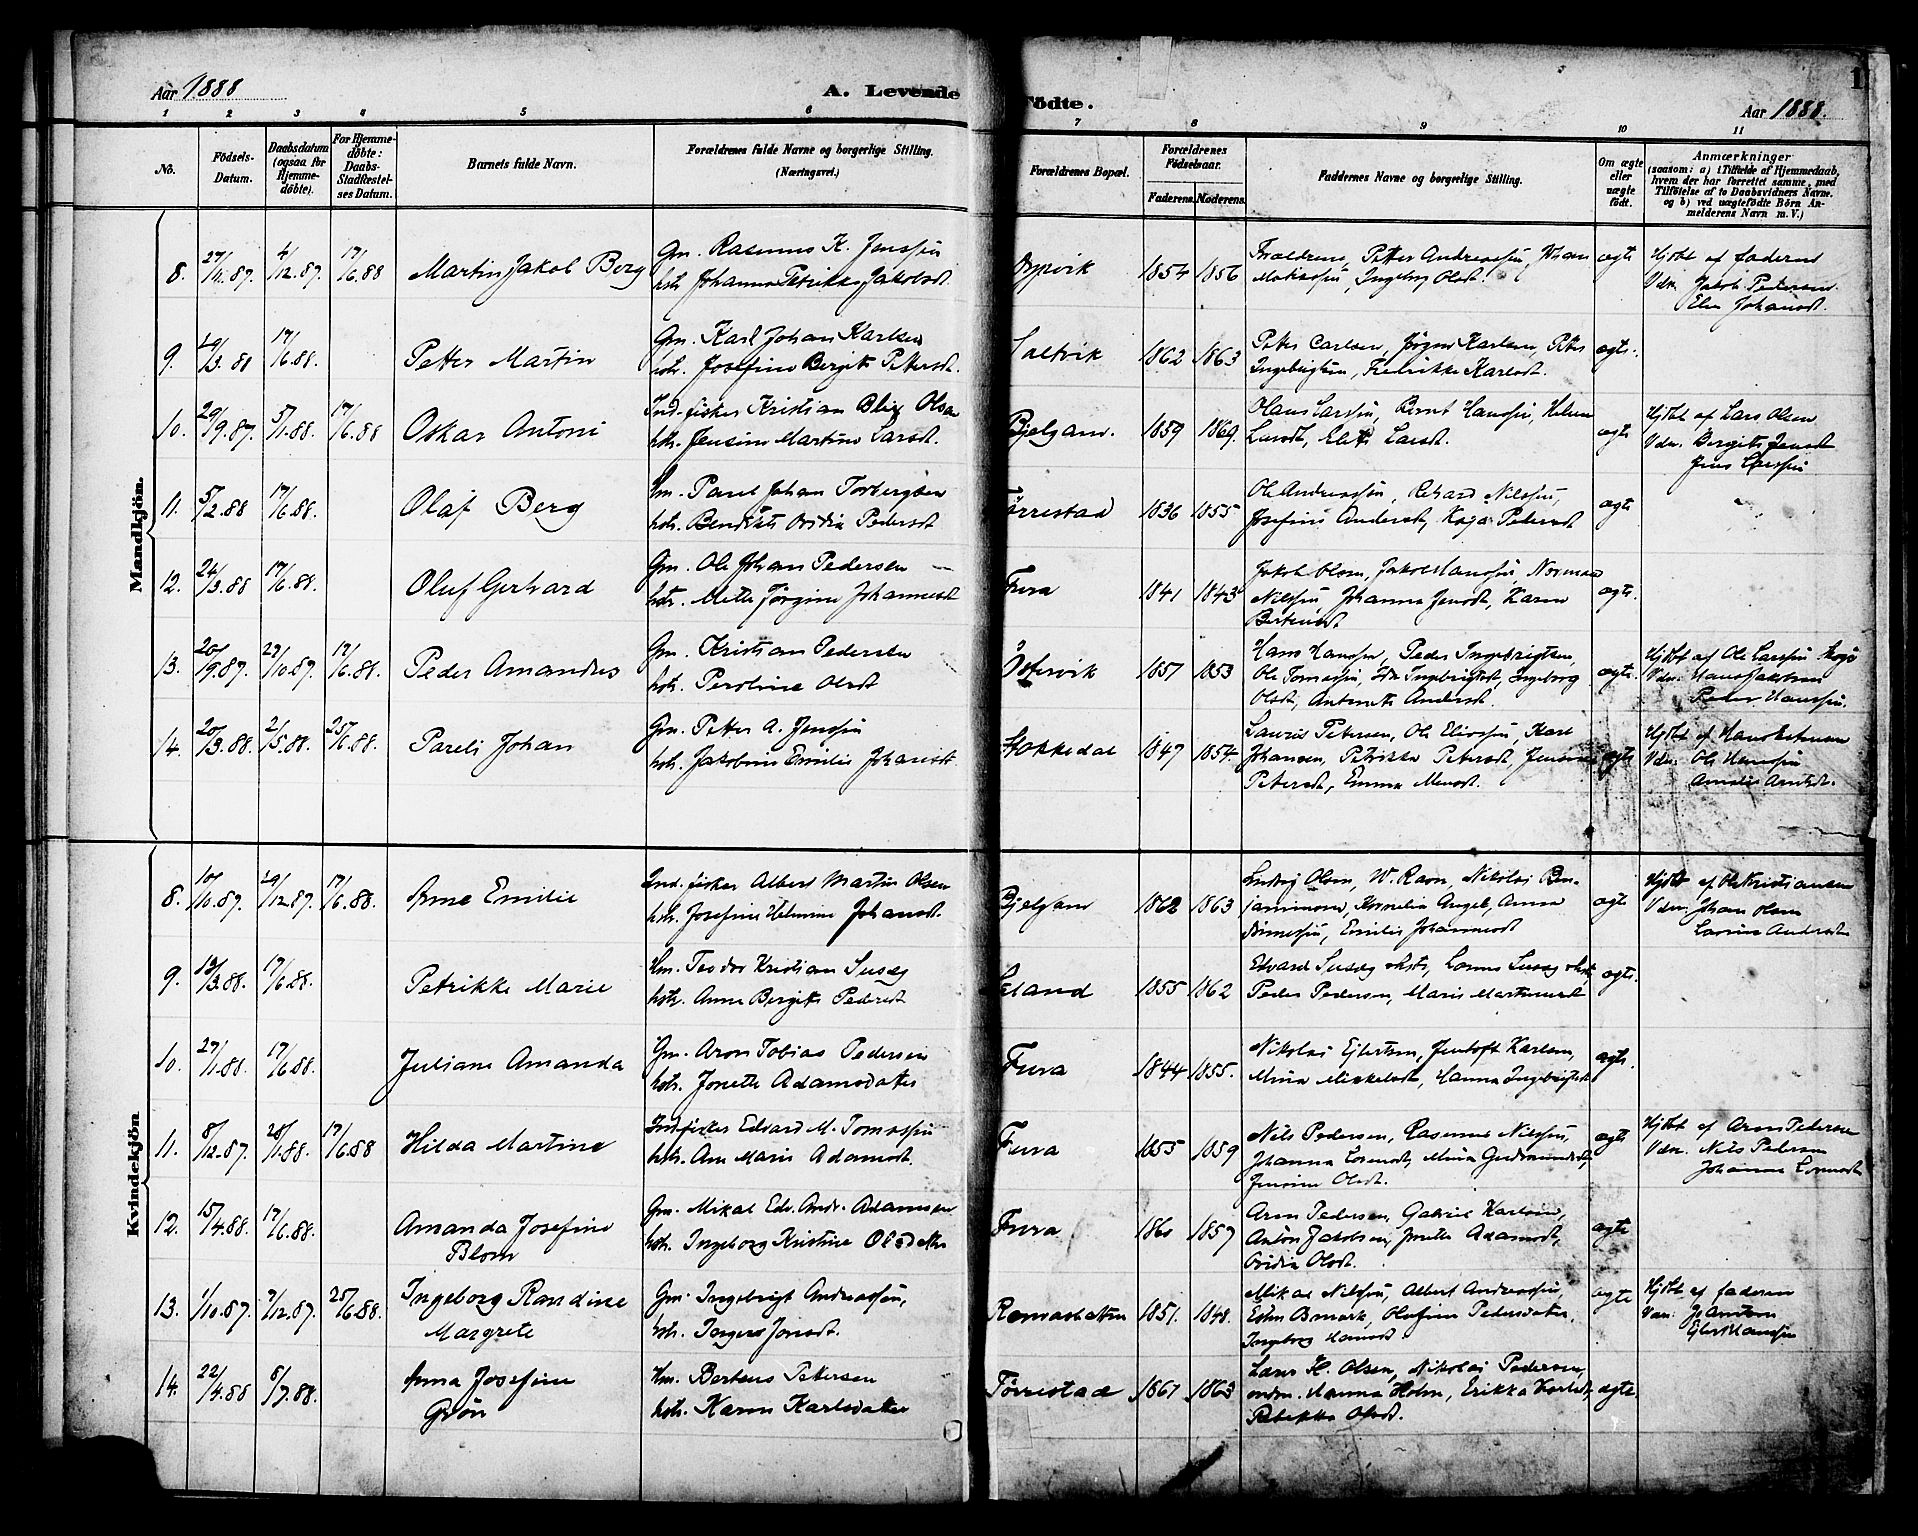 Aar 1888
A. Levende Fødte.
Aar 1888.
1 2 3 4 5 6 7 8 9 10 11
No.
Fødsels-Datum.
Daabsdatum (ogsaa for Hjemme-døbte).
For Hjemme-døbte: Daabs-Stadfæstelses Datum.
Barnets fulde Navn.
Forældrenes fulde Navne og borgerlige Stilling.
(Næringsvei.)
Forældrenes Bopæl.
Forældrenes Fødselsaar.
Faderens. Moderens.
Faddernes Navne og borgerlige Stilling.
Om ægte eller uægte født.
Anmærkninger
(saasom: a) i Tilfælde af Hjemmedaab, hvem der har forrettet samme, med Tilføielse af to Daabsvidners Navne. og b) ved uægtefødte Børn Anmelderens Navn m. V.)
Mandkjøn.
8. 27/11.87. 4/12.87. 17/6.88 Martin Jakob Berg
Gm. Rasmus K. Jenssøn
hstr. Johanna Petrikke Jakobsdt.
1854 1856
Petter Andreassøn,
Ingeborg Olsdt.
ægte
Hjdbt af faderen
Vdn. Jakob Pedersen
Johansdt.
9. 19/3.88 17/6.88. Petter Martin
Gm. Karl Johan Karlsen
hstr. Josefine Bergitte Pettersdt.
Saltvik 1862 1863
Peter Carlsen, Jørgen Karlsen, Petter
Ingebrigtsen, Fredrikke Karlsdt.
ægte.
10. 29/9.87. 5/1.88. 17/6.88 Oskar Antoni
Ind. fisker Kristian Blix Olsen
hstr. Jensine Martine Larsdt.
Bjelgam. 1859 1869.
Olaus Larssøn, Bernt Hanssøn,
Larsdt, Larsdt.
ægte
Hjdbt af Lars Olsen
Vdn. Bergitte Jensdt
Jens Larssøn
11. 5/2.88 17/6.88. Olaf Berg
Hm. Paul Johan Torbergsen
hstr. Bendikte Ovidia Pedersdt
Tørrestad 1836 1855
Ole Andreassøn, Rikard Nilssøn,
Josefine Andersdt, Pedersdt
ægte
12. 24/3.88 17/6.88. Oluf Gerhard
Gm. Ole Johan Pedersen
hstr. Mette Jørgine Johannesdt
Fura 1841 1843
Jakob Olsen, Jakob Hanssøn, Norman
Nilssøn, Johanna Jensdt, Karen
Berteusdt
ægte.
13. 20/9.87. 27/10.87. 17/6.88. Peder Amandus
Gm. Kristian Pedersen
hstr. Peroline Olsdt
Østervik 1857 1853
Hans Hanssen, Peder Ingebrigtsen,
Ole Tomassøn, Ingebrigtsdt, Ingeborg
Olsdt, Antonette Andersdt.
ægte.
Hjdbt af Ole Larssøn
Vdn. Hans Jakobsen
Peder Hanssøn.
14. 20/3.88. 2/5.88. 25/6.88. Pareli Johan
Gm. Petter A. Jenssøn
hstr. Jakobine Emilie Johansdt
Stokkedal 1847 1854.
Laurits Petersen, Ole Eliassøn, Karl
Johansen, Petrikke Petersdt,
Petersdt, Emma
ægte
Hjdbt af Hans Petersen
Vdn. Ole Hanssøn
Amalie Arntsdt.
Kvindekjøn
8. 10/10.87. 29/12.87. 17/6.88. Anne Emilie
Ind. fisker Albert Martin Olsen
hstr. Josefine Helmine Johansdt.
Bjelgam 1862 1863
Ludvig Olsen, W. Ravn, Nikolai Ben-
jaminsen, Kornelia Angel, Anna
Emilie Johannesdt
ægte
Hjdbt af Ole Kristiansen
Vdn. Johan Olsen
9. 13/3.88. 17/6.88. Petrikke Marie
Hm. Teodor Kristian Susæg
hstr. Anne Bergitte Pedersdt
1855 1862
Edvard Susæg
Peder Pedersen, Marie Martinusdt
ægte.
10. 27/1.88. 17/6.88. Juliane Amanda
Gm. Aron Tobias Pedersen
hstr. Jonette Adamsdatter
Fura 1844 1855.
Nikolai Ejlertsen, Jentoft Karlsen,
Mina Mickelsdt, Hanna Ingebrigtsdt
ægte.
11. 8/12.87. 28/1.88. 17/6.88 Hilda Martine
Ind. fisker Edvard M. Tomassøn
hstr. Ane Marie Adamsdt.
Fura 1855 1859
Nils Pedersen, Rasmus Nilssøn,
Johanna Mina Gudmundsdt,
Jensine Olsdt.
ægte
Hjdbt af Aron Pedersen
Vdn. Nils Pedersen
Johanna
12. 15/4.88. 17/6.88. Amanda Josefine
Blom
Gm. Mikal Edv. Andr. Adamsen
hstr. Ingeborg Kristine Olsdatter
Fura 1860 1857
Aron Pedersen, Gabriel Karlsen,
Anton Jakobsen, Jonette Adamsdt,
Ovidia Olsdt.
ægte
13. 1/10.87. 7/12.87. 25/6.88. Ingeborg Randine
Margrete
Gm. Ingebrigt Andreassøn,
hstr. Inger Jonsdt.
1851. 1848.
Mikal Nilssøn, Albert Andreassøn,
Olufine Pedersdatter,
Ingeborg Hansdt.
ægte
Hjdbt af faderen
Vdn.
Ejlert Hanssøn
14. 22/4.88 8/7.88. Anna Josefine
Grøn
Hm. Berteus Petersen
hstr. Karen Karlsdatter
Tørrestad 1861 1863
Lars H. Olsen, Nikolai Pedersen,
Hanna Holm, Erikka Karlsdt,
Rebekka Olsdt.
ægte